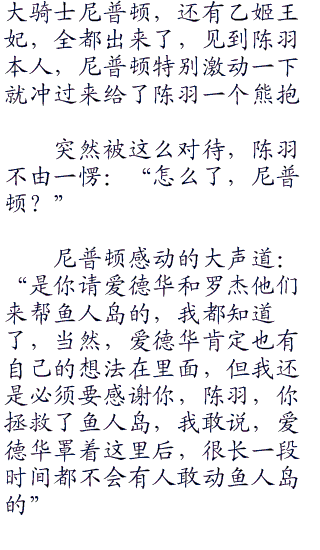 大骑士尼普顿，还有乙姬王
妃，全都出来了，见到陈羽
本人，尼普顿特别激动一下
就冲过来给了陈羽一个熊抱
突然被这么对待，陈羽
不由一愣：“怎么了，尼普
顿？”
尼普顿感动的大声道：
“是你请爱德华和罗杰他们
来帮鱼人岛的，我都知道
了，当然，爱德华肯定也有
自己的想法在里面，但我还
是必须要感谢你，陈羽，你
拯救了鱼人岛，我敢说，爱
德华罩着这里后，很长一段
时间都不会有人敢动鱼人岛
的”